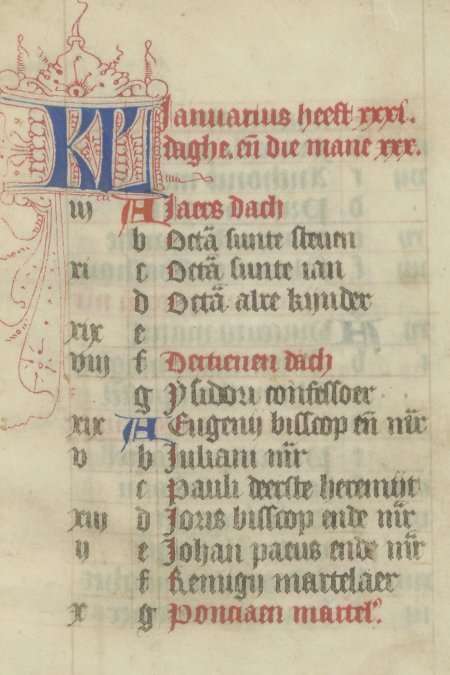 KL Januarius heeft xxxi.
daghe. en̄ die mane xxx.
iij A Jaers dach
b Octā sunte steuen
xi c Octā sunte ian
d Octā alre kinder
xix e
viij f Dertienen dach
g Ysidori confessoer
xix A Eugenij bisscop en̄ mr̄
v b Juliani mr̄
c Pauli deerste heremijt
xiij d Joris bisscop ende mr̄
ij e Johan paeus ende mr̄
f Remugij martelaer
x g Ponciaen martel.